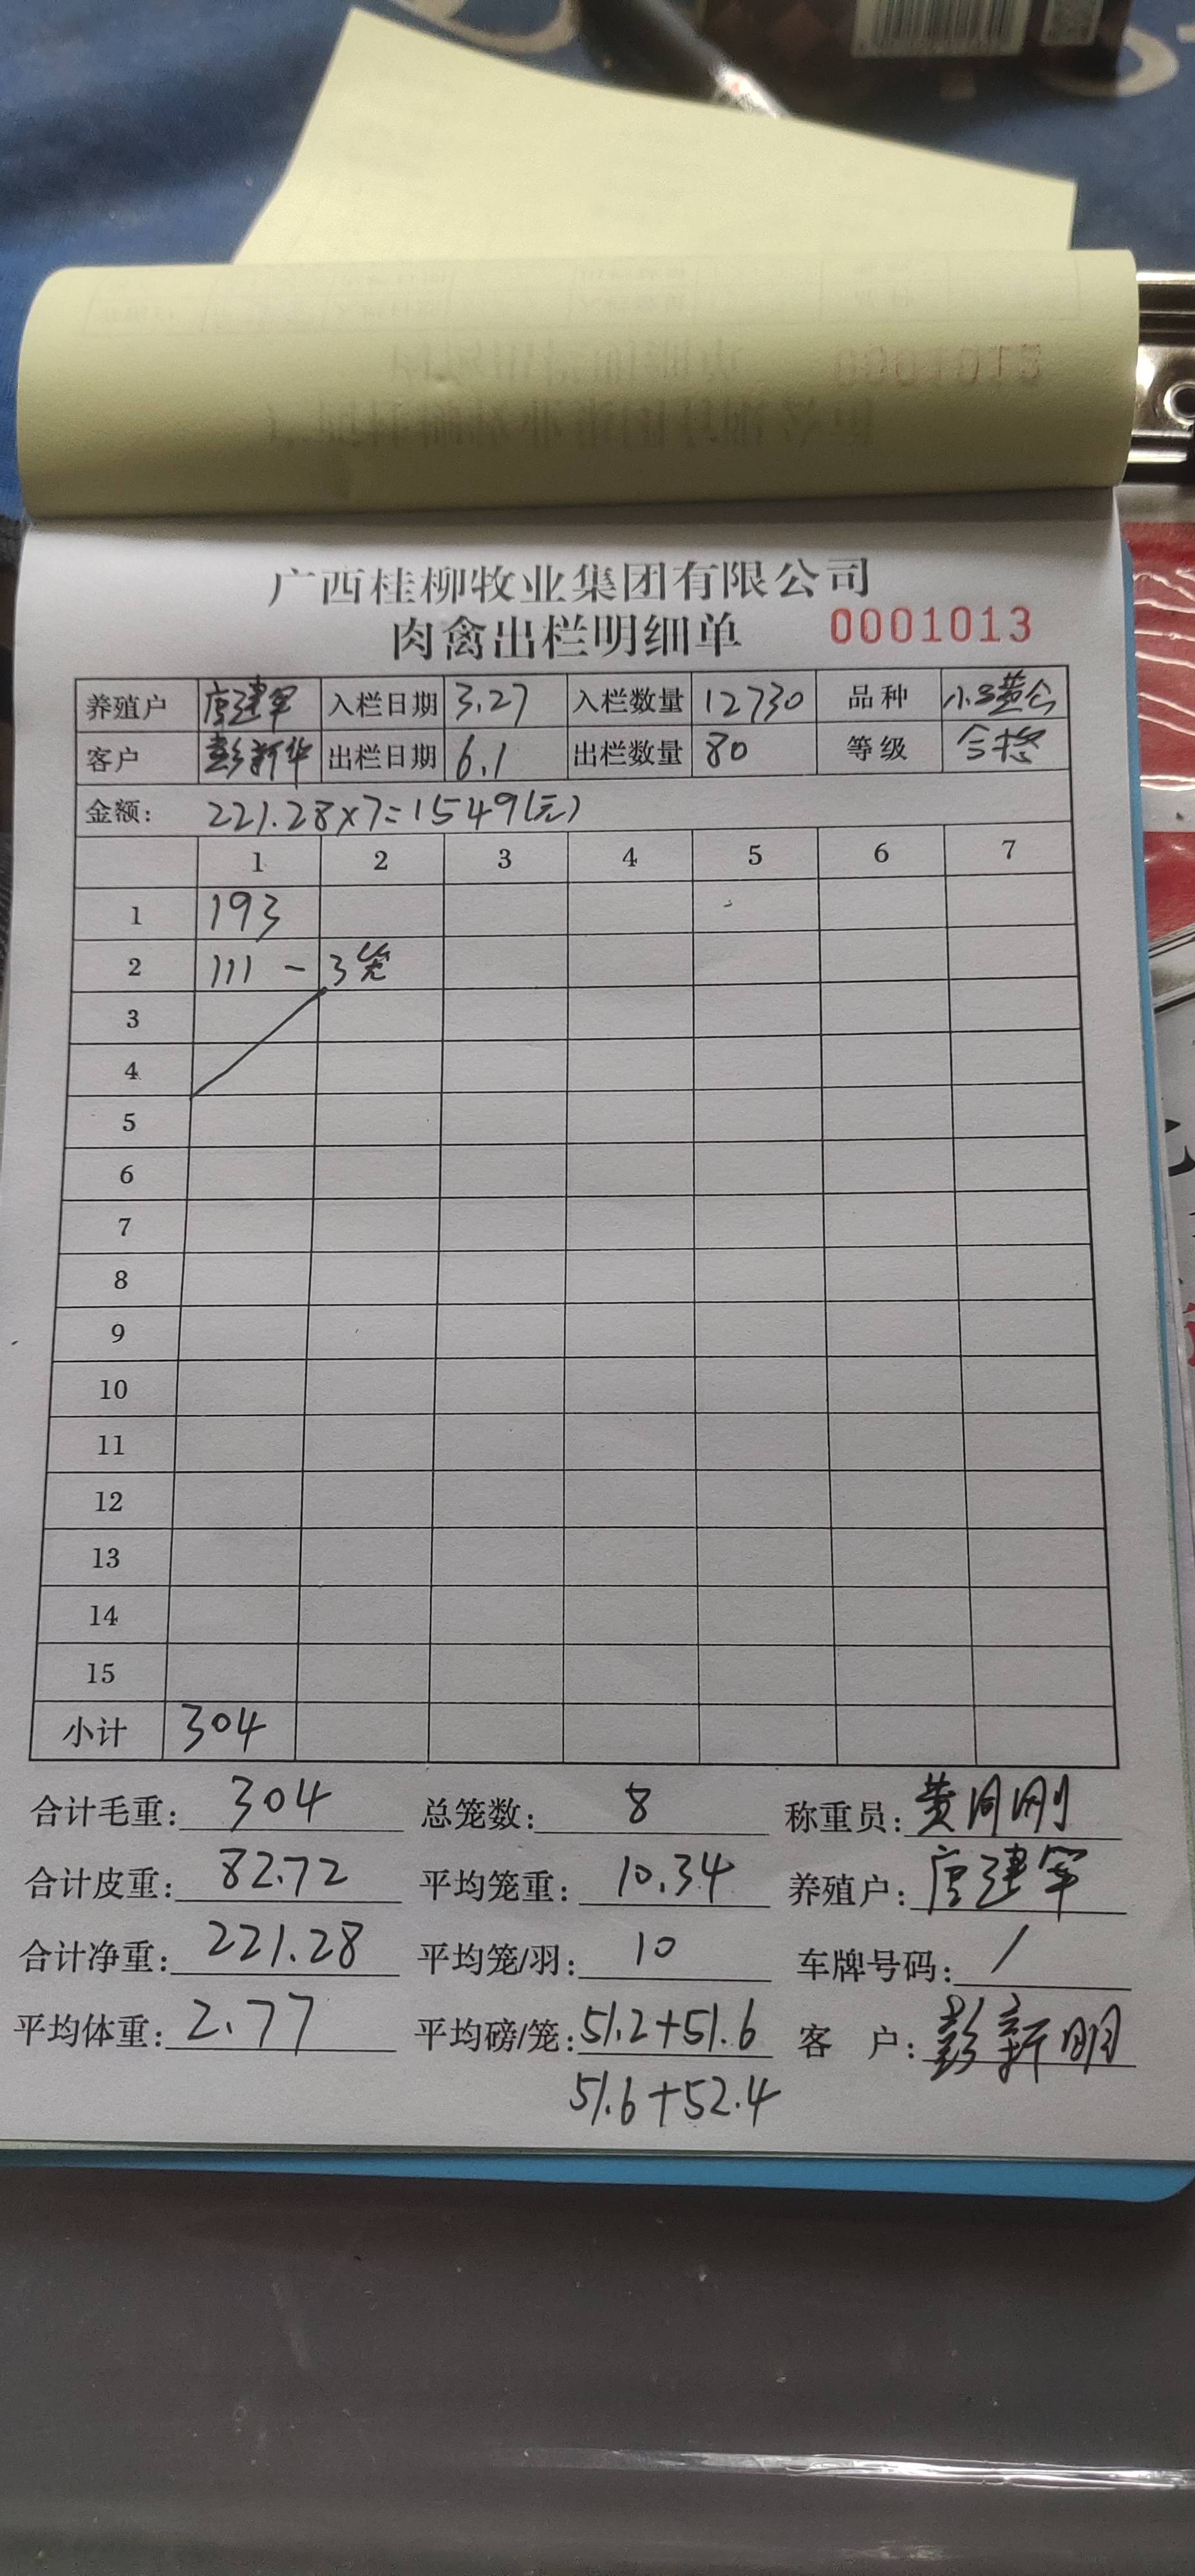 广西桂柳牧业集团有限公司
肉禽出栏明细单 0001013
养殖户 唐建军 入栏日期 3.27 入栏数量 12730 品种
客户 彭新华 出栏日期 6.1 出栏数量 80 等级 合格
金额: 221.28×7=1549(元)
1 2 3 4 5 6 7
1 193
2 111 - 3笼
3
4
5
6
7
8
9
10
11
12
13
14
15
小计 304
合计毛重: 304 总笼数: 8 称重员: 黄
合计皮重: 82.72 平均笼重: 10.34 养殖户: 唐建军
合计净重: 221.28 平均笼/羽: 10 车牌号码: /
平均体重: 2.77 平均磅/笼: 51.2+51.6 客户: 彭新明
51.6+52.4